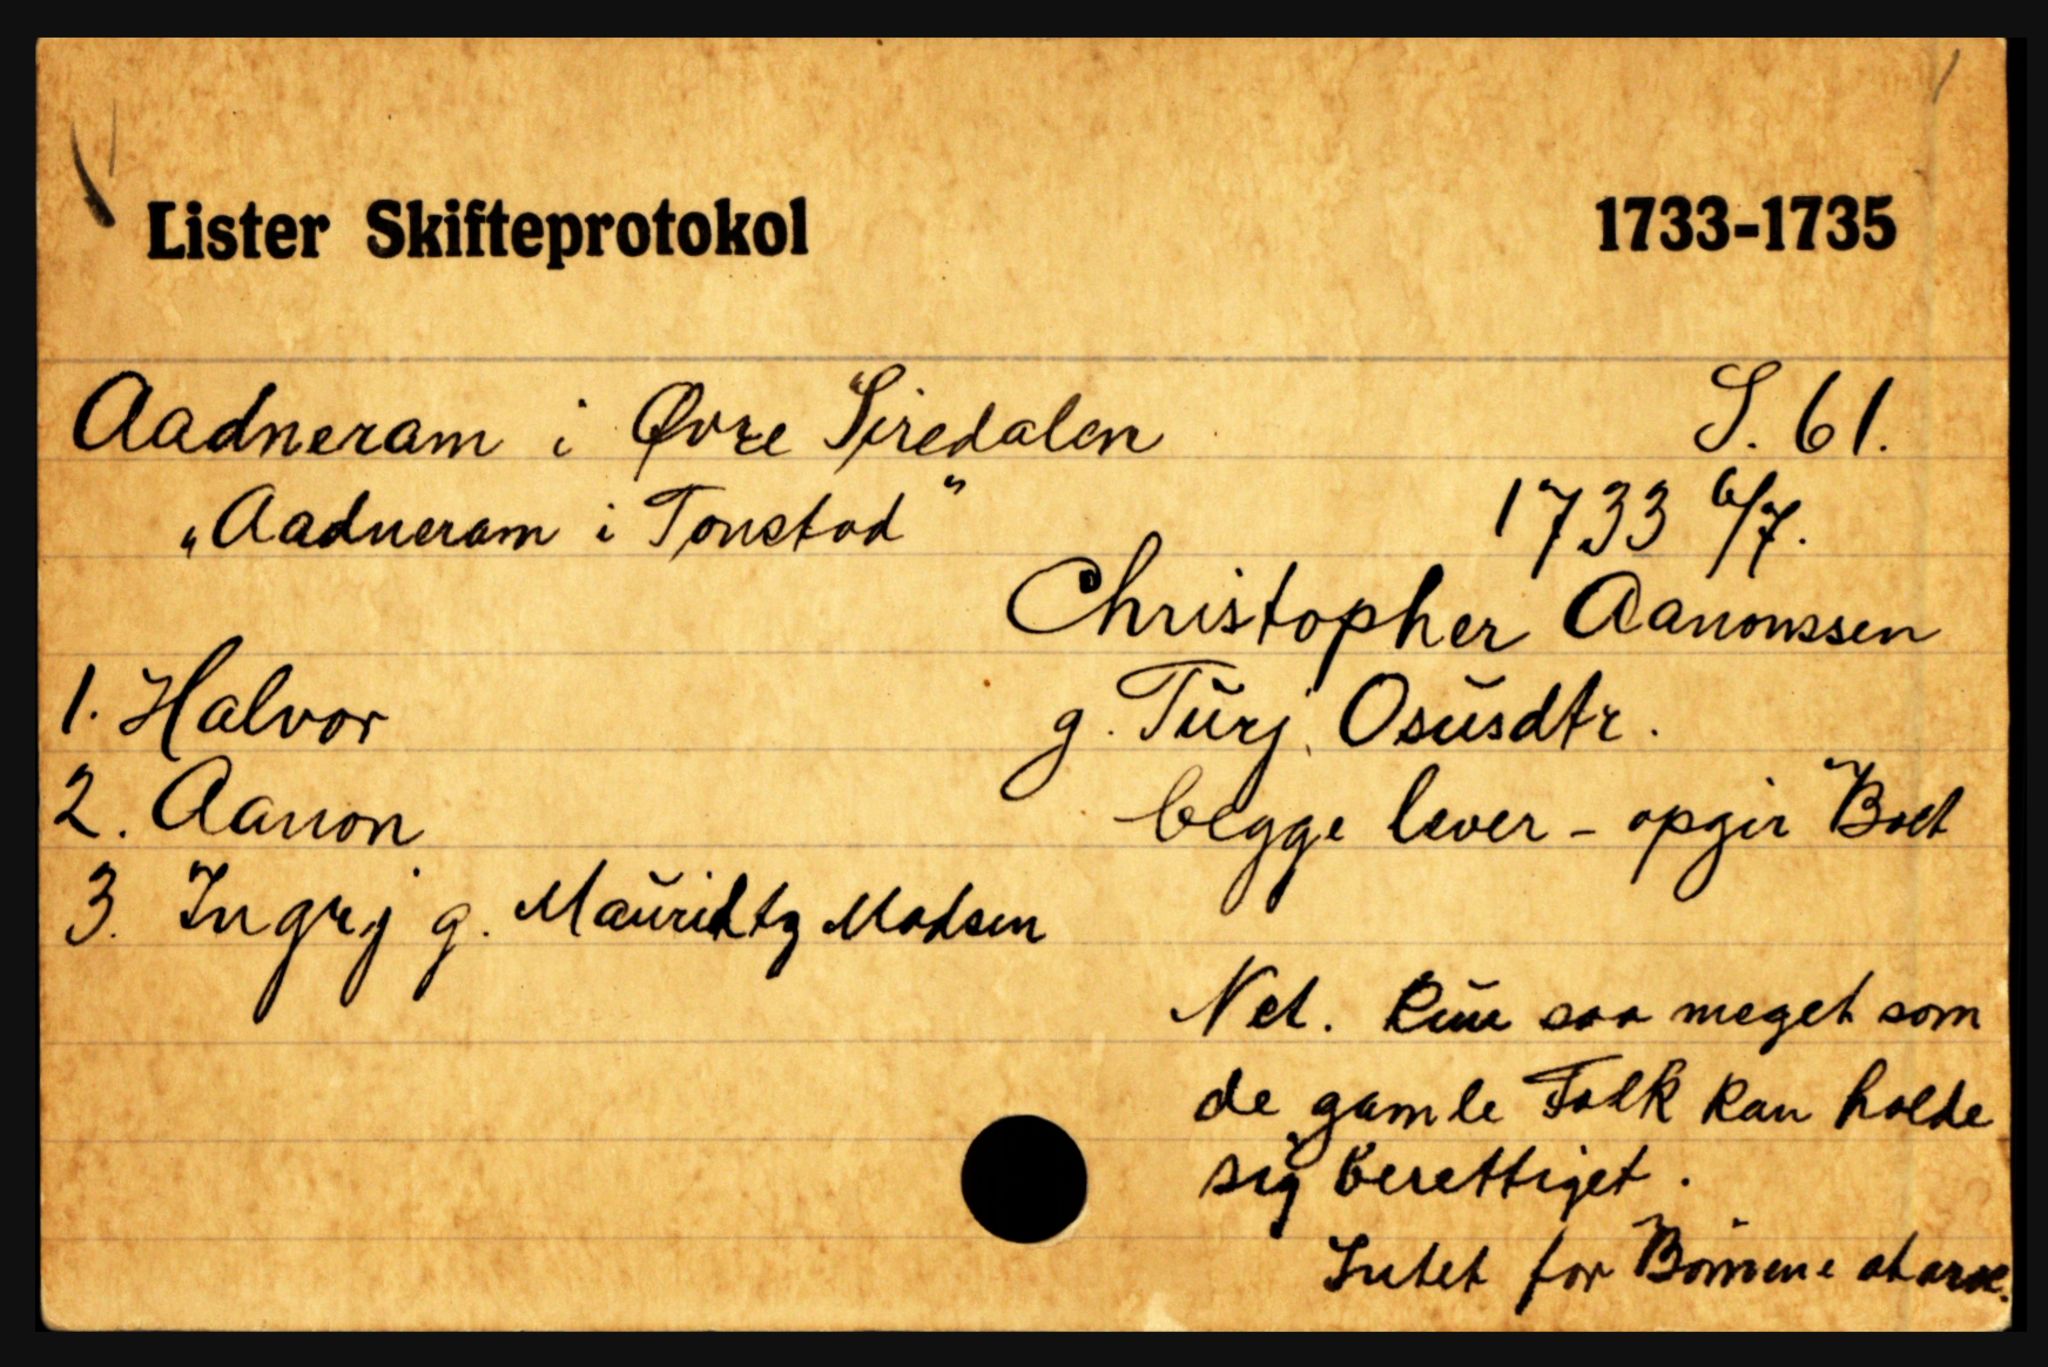 Lister Skifteprotokol 1733-1735
Aadneram i Øvre Siredalen S. 61.
„Aadneram i Tonstad” 1733 6/7.
Christopher Aanonssen
1. Halvor g. Turj Osusdtr.
2. Aanon begge lever - opgir Boet
3. Ingrj g. Mauridtz Madsen
Net. kun saa meget som
de gamle Folk kan holde
sig berettiget.
Intet for Börnene at arve.